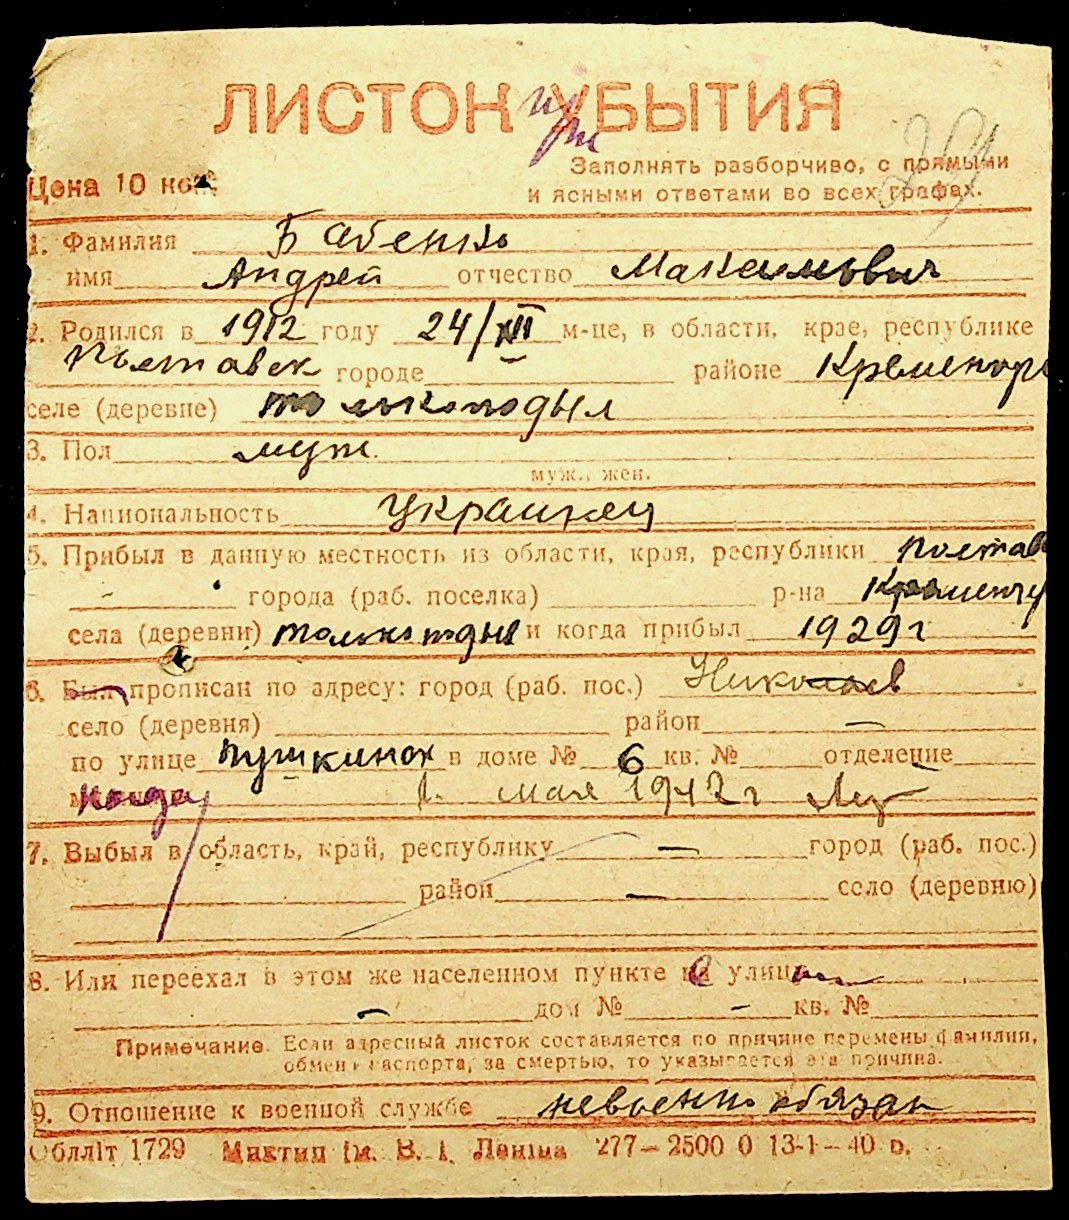 ЛИСТОН при УБЫТИЯ
Заполнять разборчиво, с прямыми
Цена 10 коп.
и ясными ответами во всех графах.
1. Фамилия Бабенко
имя Андрей отчество Максимович
2. Родился в 1912 году 24/XII м-це, в области, крае, республике
Полтавск городе районе Кременчуг
селе (деревне)
3. Пол муж.
муж., жен.
4. Национальность Украинец
5. Прибыл в данную местность из области, края, республики Полтав
города (раб. поселка) р-на Кременчу
села (деревни) и когда прибыл 1929 г
6. Был прописан по адресу: город (раб. пос.) Николаев
село (деревня) район —
по улице Пушкинск в доме № 6 кв. № отделение
когда 1. мая 1942 г
7. Выбыл в область, край, республику — город (раб. пос.)
район — село (деревню)
8. Или переехал в этом же населенном пункте с улицы
— дом № - кв. №
Примечание. Если адресный листок составляется по причине перемены фамилии,
обмен паспорта, за смертью, то указывается эта причина.
9. Отношение к военной службе невоеннообязан
Обллiт 1729 Миктип iм. В. I. Ленiна 277—2500 0 13-1—40 р.